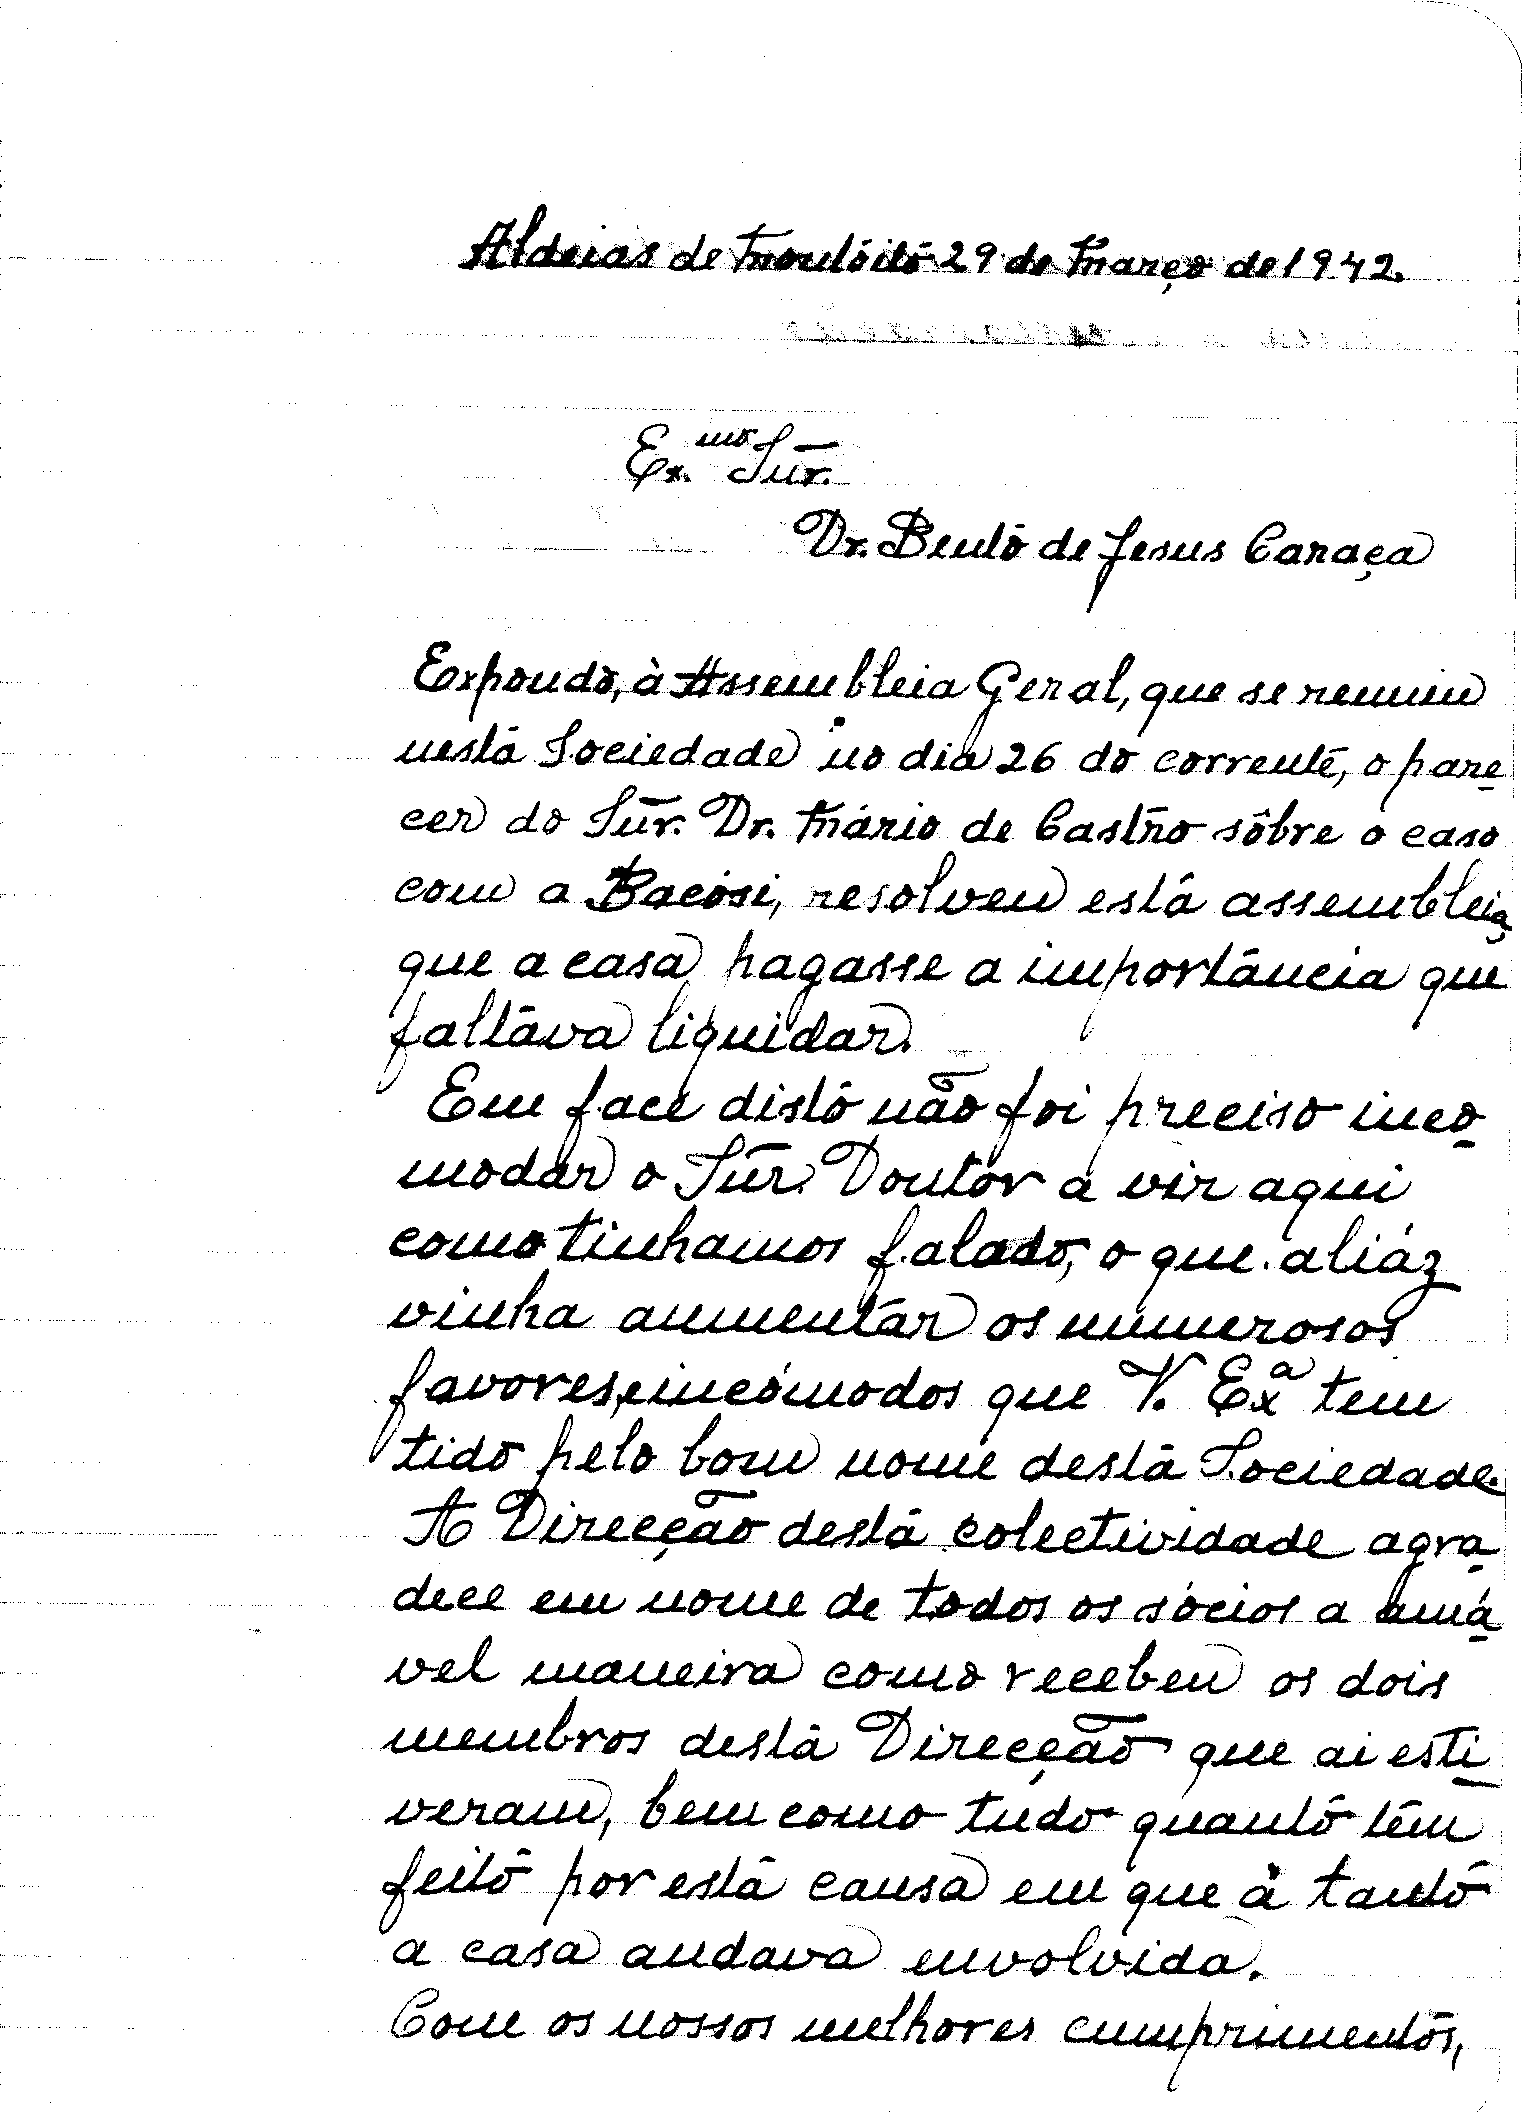 Aldeias de Montóito 29 de Março de 1942.
Ex.mo Snr.
Dr. Bento de Jesus Caraça
Expondo, à Assembleia Geral, que se reuniu
nesta Sociedade no dia 26 do corrente, o pare
cer do Snr. Dr. Mário de Castro sôbre o caso
com a Bacósi, resolveu esta assembleia
que a casa pagasse a importância que
faltava liquidar.
Em face disto não foi preciso inco
modar o Snr. Doutor a vir aqui
como tinhamos falado, o que aliáz
vinha aumentar os numerosos
favores, incómodos que V. Exª tem
tido pelo bom nome desta Sociedade.
A Direcção desta colectividade agra
dece em nome de todos os sócios a amá
vel maneira como recebeu os dois
membros desta Direcção que ai esti
veram, bem como tudo quanto têm
feito por esta causa em que à tanto
a casa andava envolvida.
Com os nossos melhores cumprimentos,